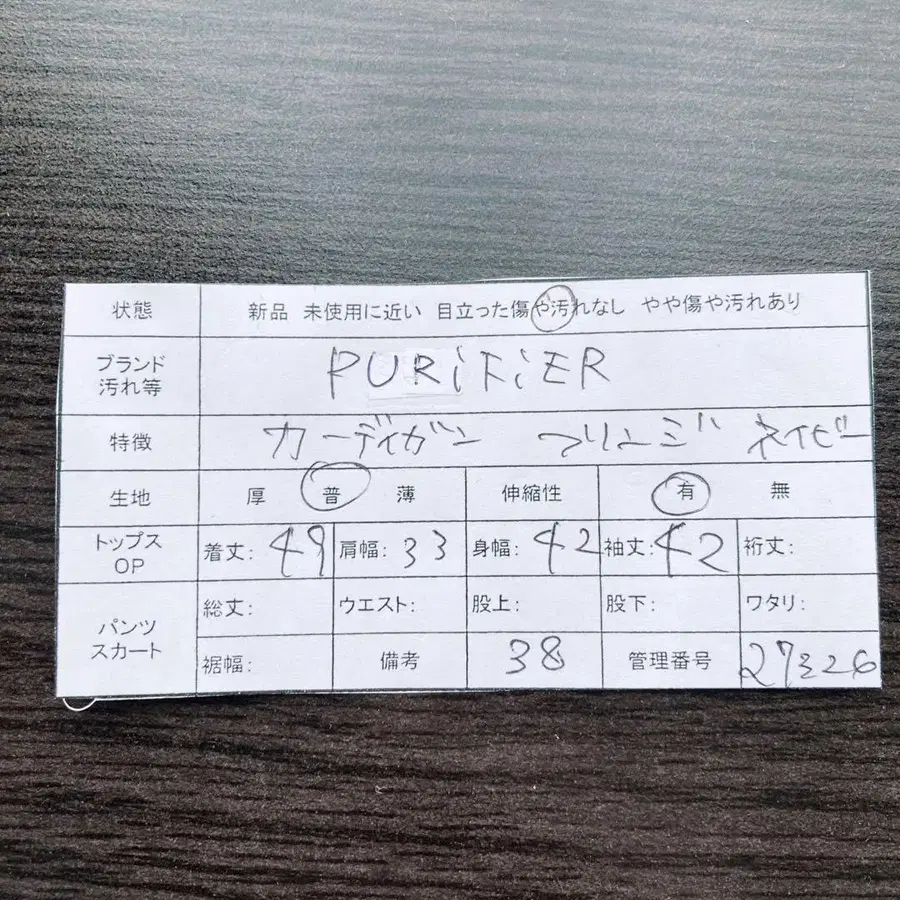 状態 新品 未使用に近い 目立った傷や汚れなし やや傷や汚れあり
ブランド
汚れ等 PURiFiER
特徴 カーディガン フリンジ ネイビー
生地 厚 普 薄 伸縮性 有 無
トップス
OP 着丈: 49 肩幅: 33 身幅: 42 袖丈: 42 裄丈:
パンツ
スカート 総丈: ウエスト: 股上: 股下: ワタリ:
裾幅: 備考 38 管理番号 27326